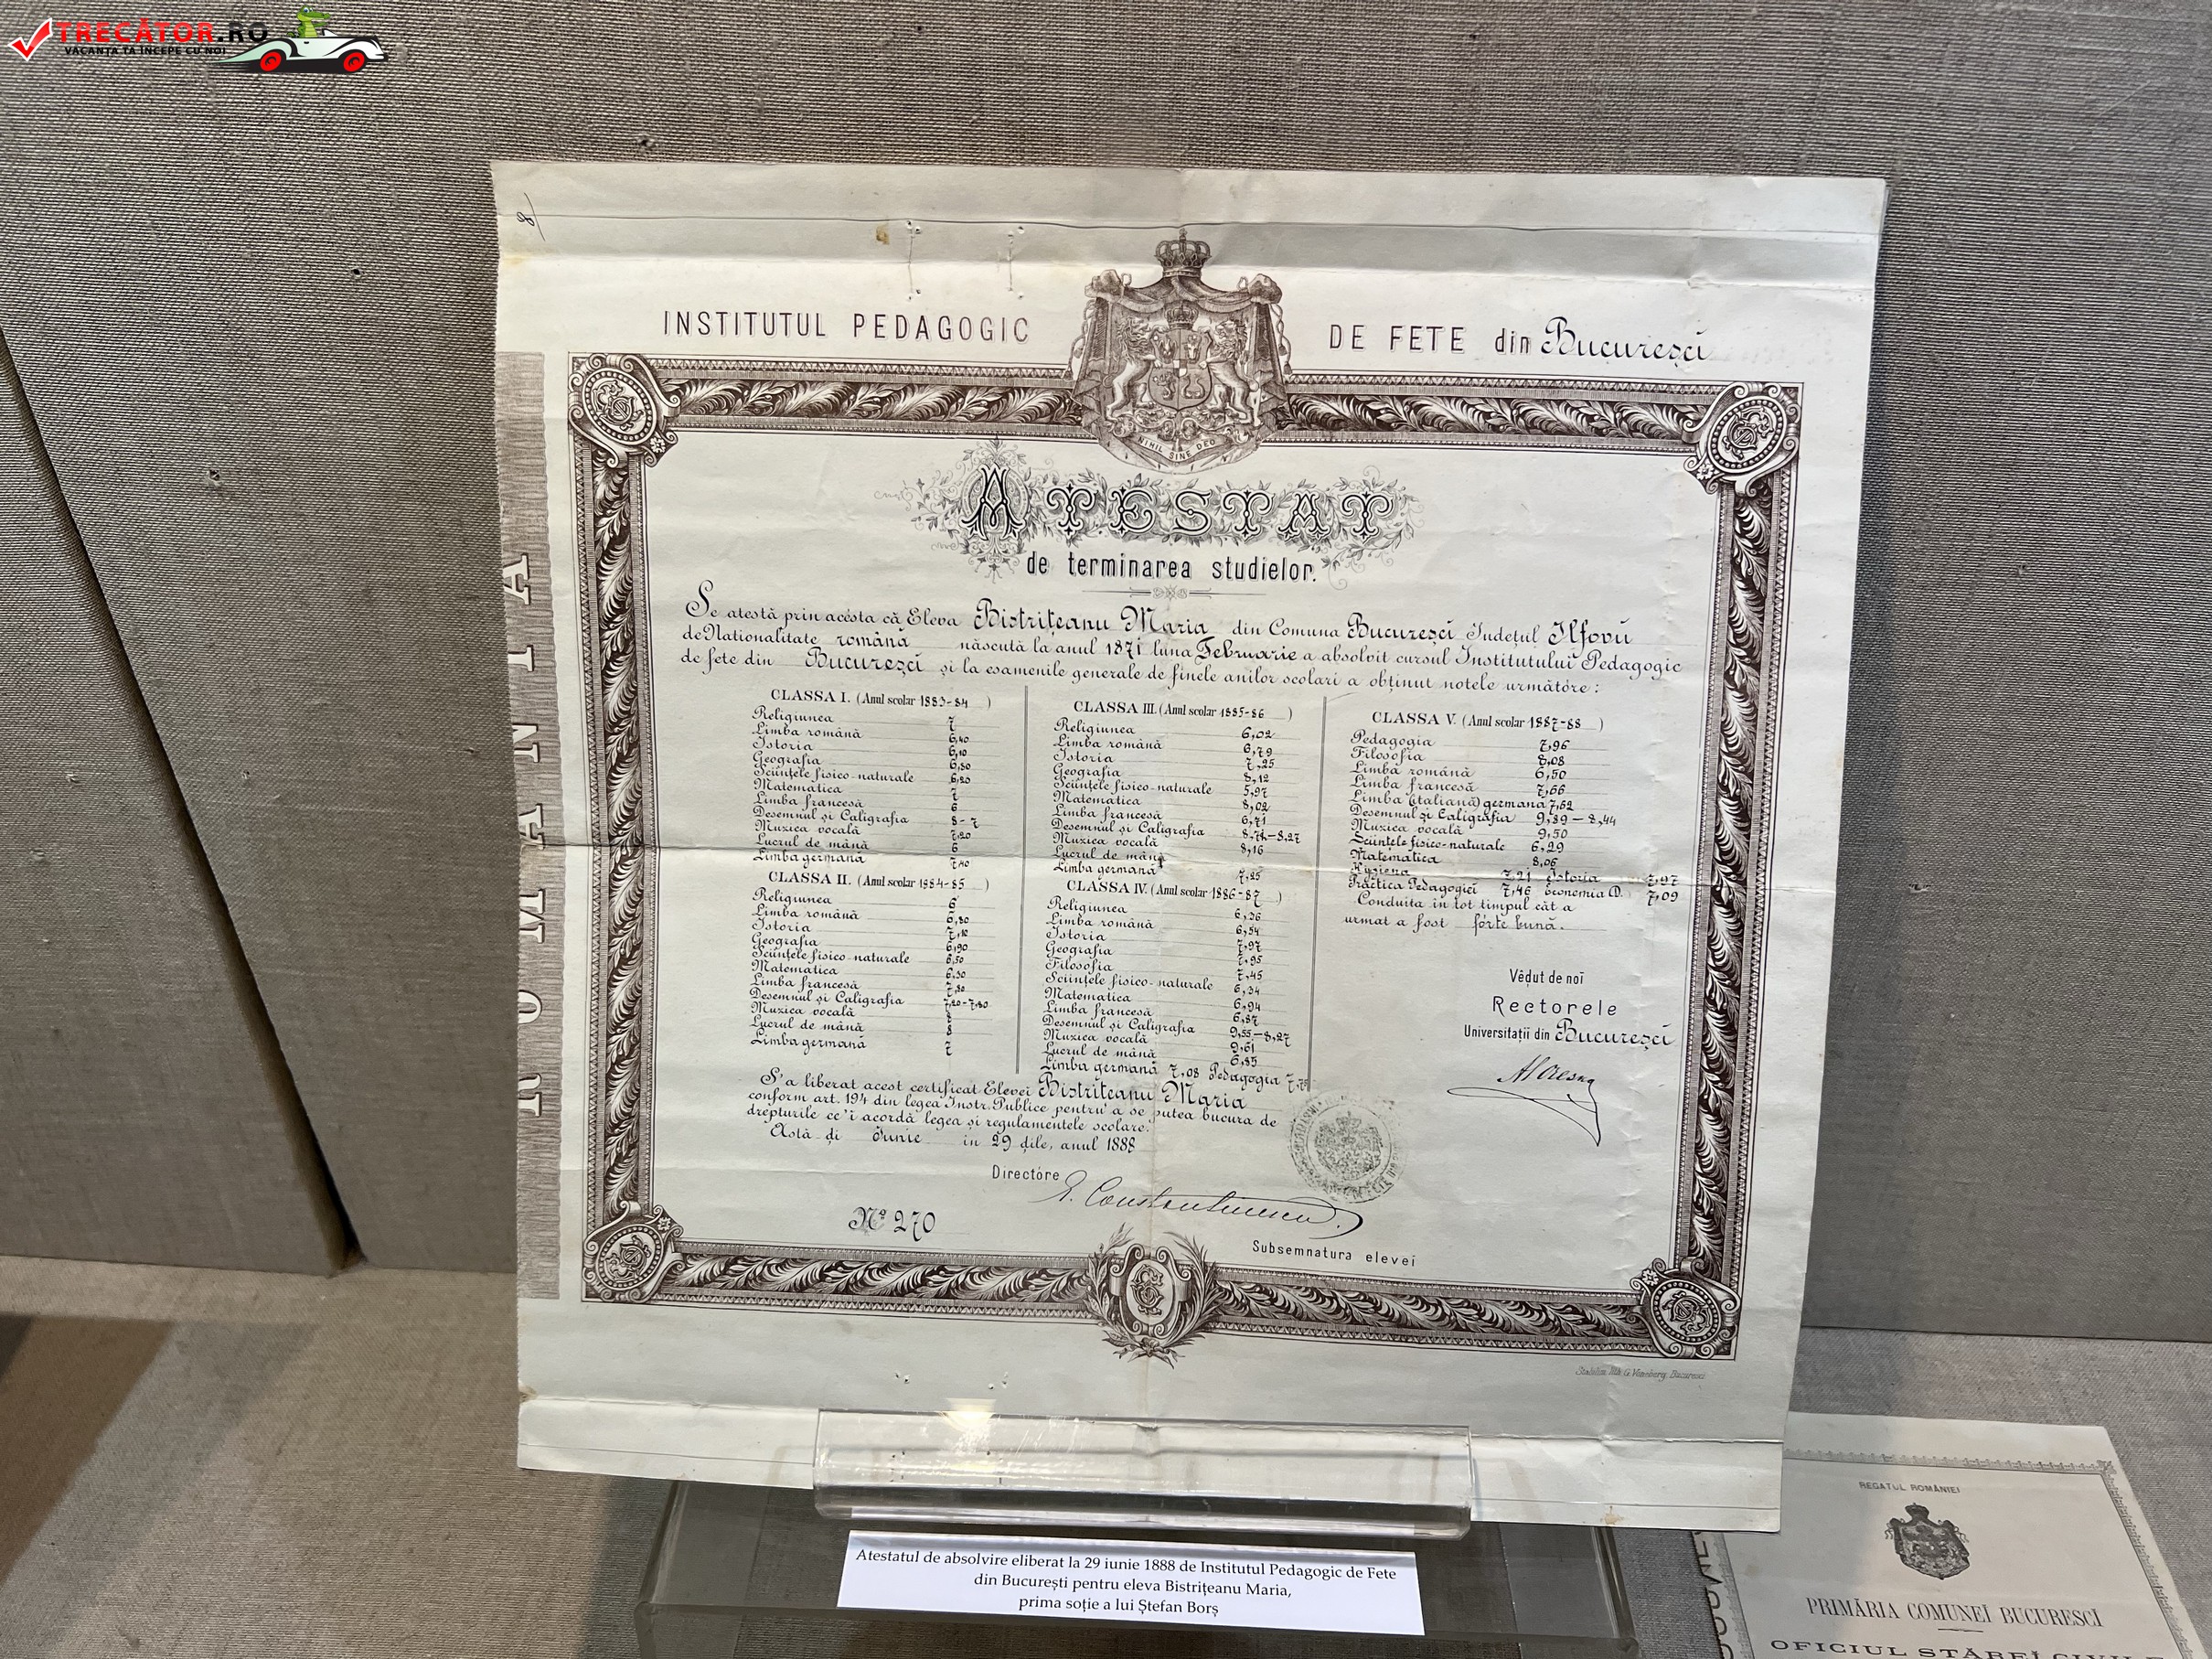 TRECĂTOR.RO
VACANȚA TA ÎNCEPE CU NOI
INSTITUTUL PEDAGOGIC DE FETE din Bucurescĭ
NIHIL SINE DEO
ROMANIA
ATESTAT
de terminarea studielor.
Se atestă prin acésta că Eleva Bistrițeanu Maria din Comuna Bucurescĭ Județul Ilfovŭ
de Nationalitate română născută la anul 1871 luna Februarie a absolvit cursul Institutuluĭ Pedagogic
de fete din Bucurescĭ și la esamenile generale de finele anilor scolari a obținut notele următóre:
CLASSA I. (Anul scolar 1883-84)
Religiunea 7
Limba română 6,40
Istoria 6,10
Geografia 6,80
Sciințele fisico-naturale 6,20
Matematica 7
Limba francesă 6
Desemnul și Caligrafia 8-7
Muzica vocală 7,20
Lucrul de mână 6
Limba germană 7,40
CLASSA II. (Anul scolar 1884-85)
Religiunea 6
Limba română 6,80
Istoria 7,10
Geografia 6,90
Sciințele fisico-naturale 6,50
Matematica 6,30
Limba francesă 7,80
Desemnul și Caligrafia 7,20-7,80
Muzica vocală 8
Lucrul de mână 8
Limba germană 7
CLASSA III. (Anul scolar 1885-86)
Religiunea 6,02
Limba română 6,79
Istoria 7,25
Geografia 8,12
Sciințele fisico-naturale 5,97
Matematica 8,02
Limba francesă 6,71
Desemnul și Caligrafia 8,71-8,27
Muzica vocală 8,16
Lucrul de mână
Limba germană 7,25
CLASSA IV. (Anul scolar 1886-87)
Religiunea 6,36
Limba română 6,54
Istoria 7,97
Geografia 7,95
Filosofia 7,45
Sciințele fisico-naturale 6,34
Matematica 6,94
Limba francesă 6,87
Desemnul și Caligrafia 9,55-8,27
Muzica vocală 9,61
Lucrul de mână 6,85
Limba germană 7,08 Pedagogia 7,75
CLASSA V. (Anul scolar 1887-88)
Pedagogia 7,96
Filosofia 8,08
Limba română 6,50
Limba francesă 7,66
Limba (italiană) germana 7,62
Desemnul și Caligrafia 9,39-8,44
Muzica vocală 9,50
Sciințele fisico-naturale 6,29
Matematica 8,06
Hygiena 7,21 Istoria 7,97
Practica Pedagogieĭ 7,46 Economia D. 7,09
Conduita în tot timpul cât a
urmat a fost fórte bună.
Vĕdut de noĭ
Rectorele
Universității din Bucurescĭ
S'a liberat acest certificat Elevei Bistrițeanu Maria
conform art. 194 din legea Instr. Publice pentru a se putea bucura de
drepturile ce'i acordă legea și regulamentele scolare.
Astă-ḑi Iunie în 29 ḑile, anul 1888
Directóre E. Constantinescu.
Nº 270
Subsemnatura elevei
Bucuresci
Atestatul de absolvire eliberat la 29 iunie 1888 de Institutul Pedagogic de Fete
din București pentru eleva Bistrițeanu Maria,
prima soție a lui Ștefan Borș
REGATUL ROMÂNIEI
PRIMĂRIA COMUNEĬ BUCURESCĬ
OFICIUL STĂREĬ CIVILE